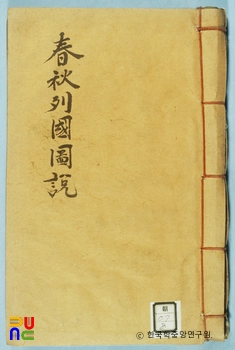 春秋列國圖說
朝
© 한국학중앙연구원.